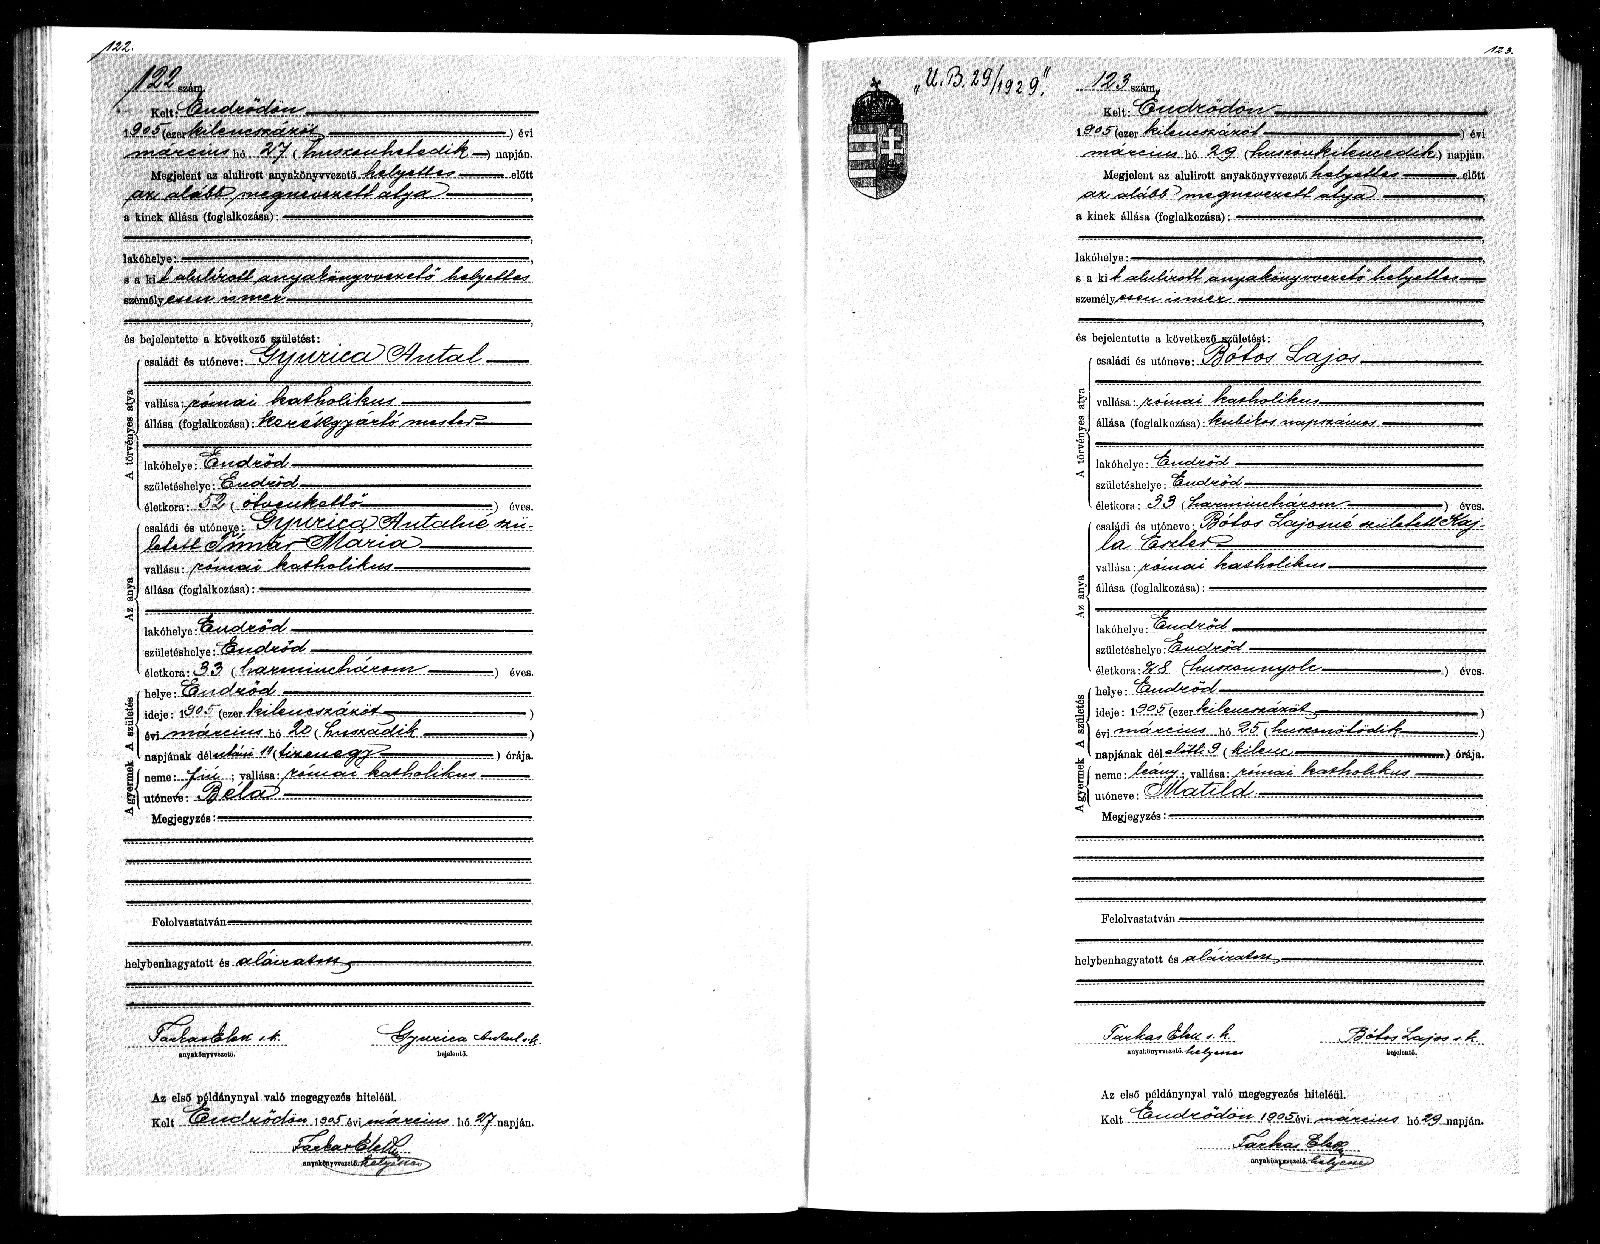 122.
122 szám.
Kelt: Endrődön
1905 (ezer kilenczszázöt ) évi
március hó 27 (huszonhetedik ) napján.
Megjelent az alulirott anyakönyvvezető helyettes előtt
az alább megnevezett atya ,
a kinek állása (foglalkozása):
,
lakóhelye: ,
s a kit alulírott anyakönyvvezető helyettes
személyesen ismer
,
és bejelentette a következő születést:
A törvényes atya
családi és utóneve: Gyurica Antal
vallása: római katholikus
állása (foglalkozása): kerékgyártó mester
lakóhelye: Endrőd
születéshelye: Endrőd
életkora: 52 (ötvenkettő ) éves.
Az anya
családi és utóneve: Gyurica Antalné szü-
letett Timár Maria
vallása: római katholikus
állása (foglalkozása):
lakóhelye: Endrőd
születéshelye: Endrőd
életkora: 33 (harminchárom ) éves.
A születés
helye: Endrőd
ideje: 1905 (ezer kilenczszázöt )
évi március hó 20 (huszadik )
napjának délutáni 11 (tizenegy ) órája.
A gyermek
neme: fiú ; vallása: római katholikus
utóneve: Béla
Megjegyzés:
Felolvastatván
helybenhagyatott és aláiratott
Farkas Elek s.k. Gyurica Antal s.k.
anyakönyvvezető. bejelentő.
Az első példánynyal való megegyezés hiteléül.
Kelt Endrődön 1905 évi március hó 27 napján.
Farkas Elek
anyakönyvvezető. helyettes
123.
„U.B. 29/1929."
123 szám.
Kelt: Endrődön
1905 (ezer kilenczszázöt ) évi
március hó 29 (huszonkilencedik) napján.
Megjelent az alulirott anyakönyvvezető helyettes előtt
az alább megnevezett atya ,
a kinek állása (foglalkozása):
,
lakóhelye: ,
s a kit alulirott anyakönyvvezető helyettes
személyesen ismer
,
és bejelentette a következő születést:
A törvényes atya
családi és utóneve: Bótos Lajos
vallása: római katholikus
állása (foglalkozása): kubikos napszámos
lakóhelye: Endrőd
születéshelye: Endrőd
életkora: 33 (harminchárom ) éves.
Az anya
családi és utóneve: Bótos Lajosné született Kaj-
la Eszter
vallása: római katholikus
állása (foglalkozása):
lakóhelye: Endrőd
születéshelye: Endrőd
életkora: 28 (huszonnyolc ) éves.
A születés
helye: Endrőd
ideje: 1905 (ezer kilenczszázöt )
évi március hó 25 (huszonötödik )
napjának délelőtt 9 (kilenc ) órája.
A gyermek
neme: leány ; vallása: római katholikus
utóneve: Matild
Megjegyzés:
Felolvastatván
helybenhagyatott és aláiratott
Farkas Elek s.k. Bótos Lajos s.k.
anyakönyvvezető. helyettes bejelentő.
Az első példánynyal való megegyezés hiteléül.
Kelt Endrődön 1905 évi március hó 29 napján.
Farkas Elek
anyakönyvvezető. helyettes